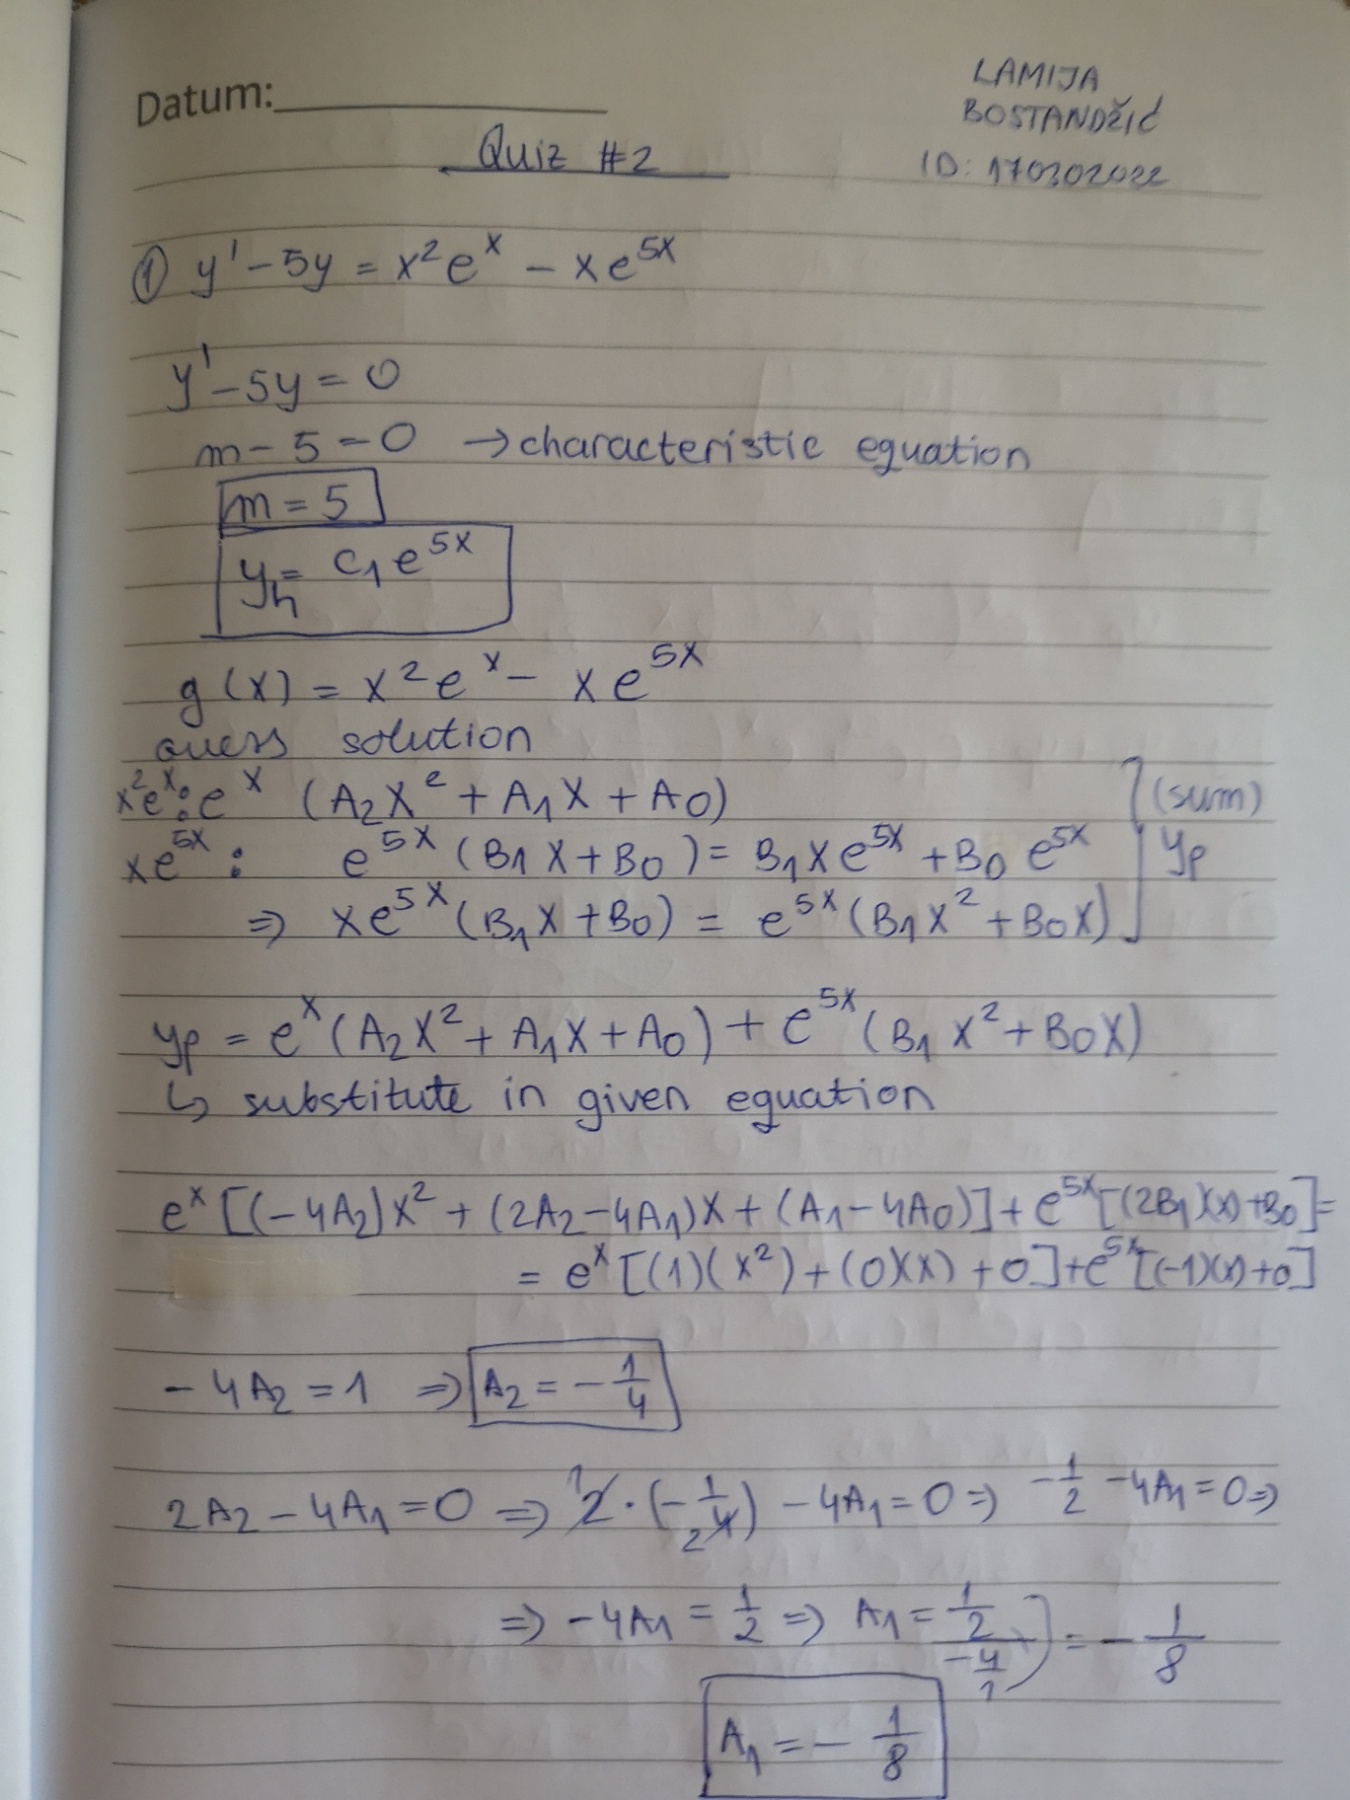 Datum:
LAMIJA
BOSTANDŽIĆ
ID: 170302022
Quiz #2
① y' - 5y = x²eˣ - xe⁵ˣ
y' - 5y = 0
m - 5 = 0 → characteristic equation
m = 5
y_h = C₁e⁵ˣ
g(x) = x²eˣ - xe⁵ˣ
guess solution
x²eˣ: eˣ (A₂x² + A₁x + A₀)
(sum)
xe⁵ˣ: e⁵ˣ (B₁x + B₀) = B₁xe⁵ˣ + B₀e⁵ˣ
yp
⇒ xe⁵ˣ (B₁x + B₀) = e⁵ˣ (B₁x² + B₀x)
yp = eˣ (A₂x² + A₁x + A₀) + e⁵ˣ (B₁x² + B₀x)
↳ substitute in given equation
eˣ [(-4A₂)x² + (2A₂ - 4A₁)x + (A₁ - 4A₀)] + e⁵ˣ [(2B₁)(x) + B₀] =
= eˣ [(1)(x²) + (0)(x) + 0] + e⁵ˣ [(-1)(x) + 0]
-4A₂ = 1 ⇒ A₂ = -1/4
2A₂ - 4A₁ = 0 ⇒ 2 · (-1/4) - 4A₁ = 0 ⇒ -1/2 - 4A₁ = 0 ⇒
⇒ -4A₁ = 1/2 ⇒ A₁ = (1/2)/(-4/1) = -1/8
A₁ = -1/8